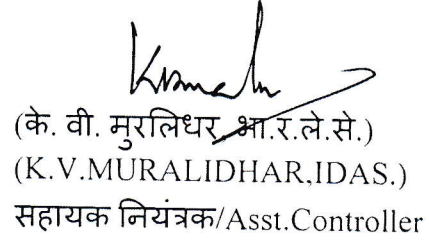 (के. वी. मुरलिधर, भा.र.ले.से.)
(K.V.MURALIDHAR,IDAS.)
सहायक नियंत्रक/Asst.Controller